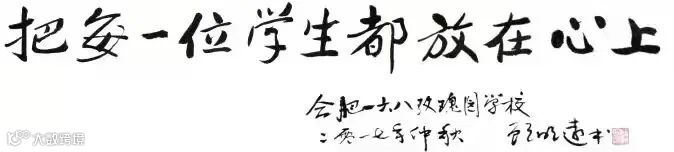 把每一位学生都放在心上
合肥一六八玫瑰园学校
二零一七年仲秋 顾明远书
大数跨境